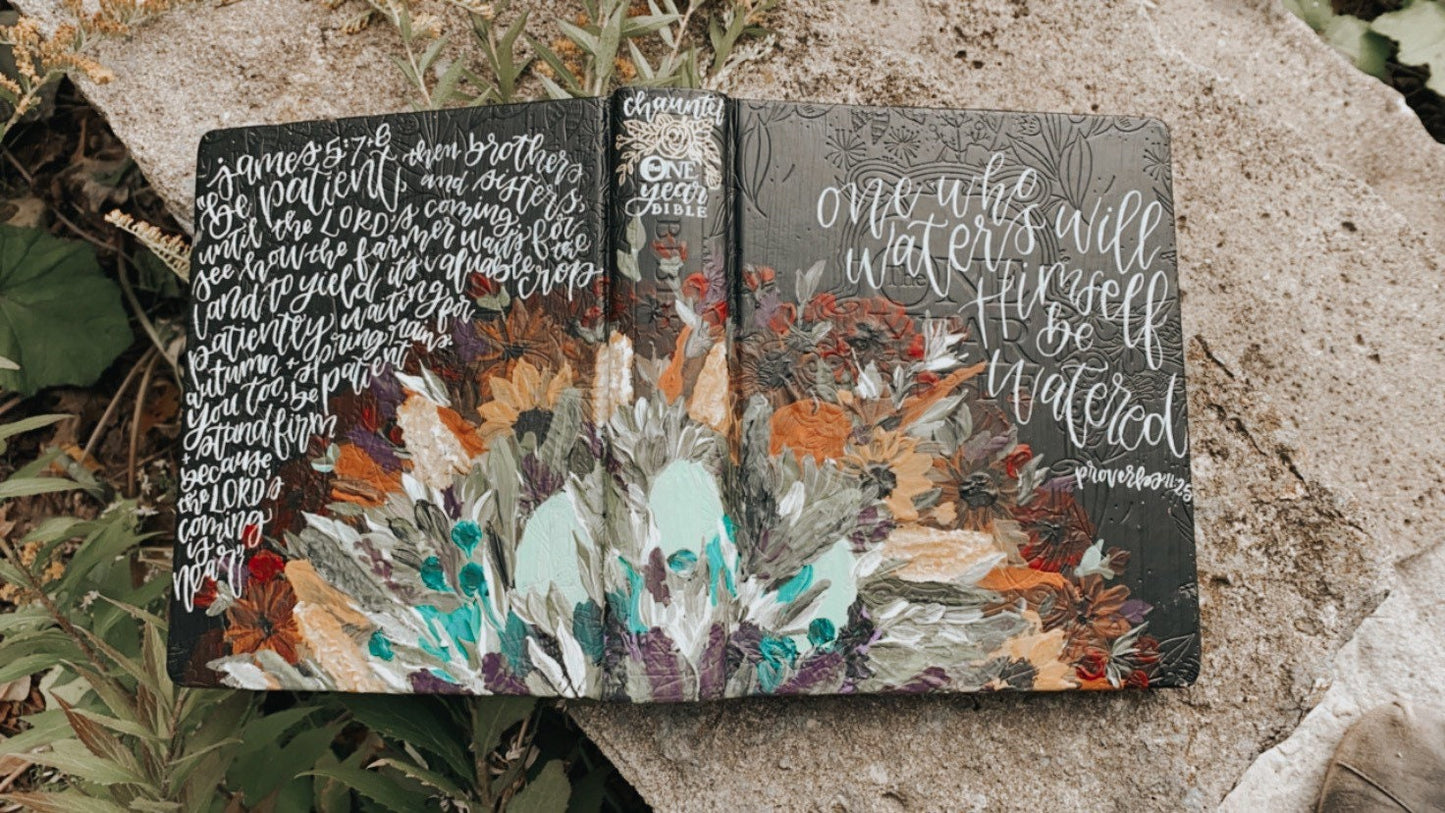 james 5:7+8
"be patient, then brothers
and sisters,
until the LORD's coming.
see how the farmer waits for
the
land to yield its valuable crop
patiently waiting for
autumn + spring rains.
You too, be patient
+ stand firm
because
the LORD's
coming
is
near"
chauntel
ONE
year
BIBLE
BIBLE
one who
waters will
Himself
be
watered
proverbs 11:25